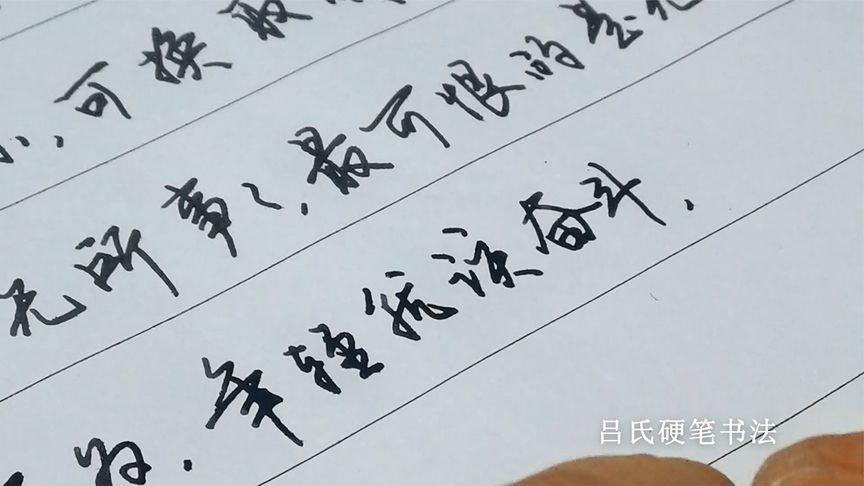 可换取
无所事事、最可恨的莫
为、年轻就该奋斗、
吕氏硬笔书法